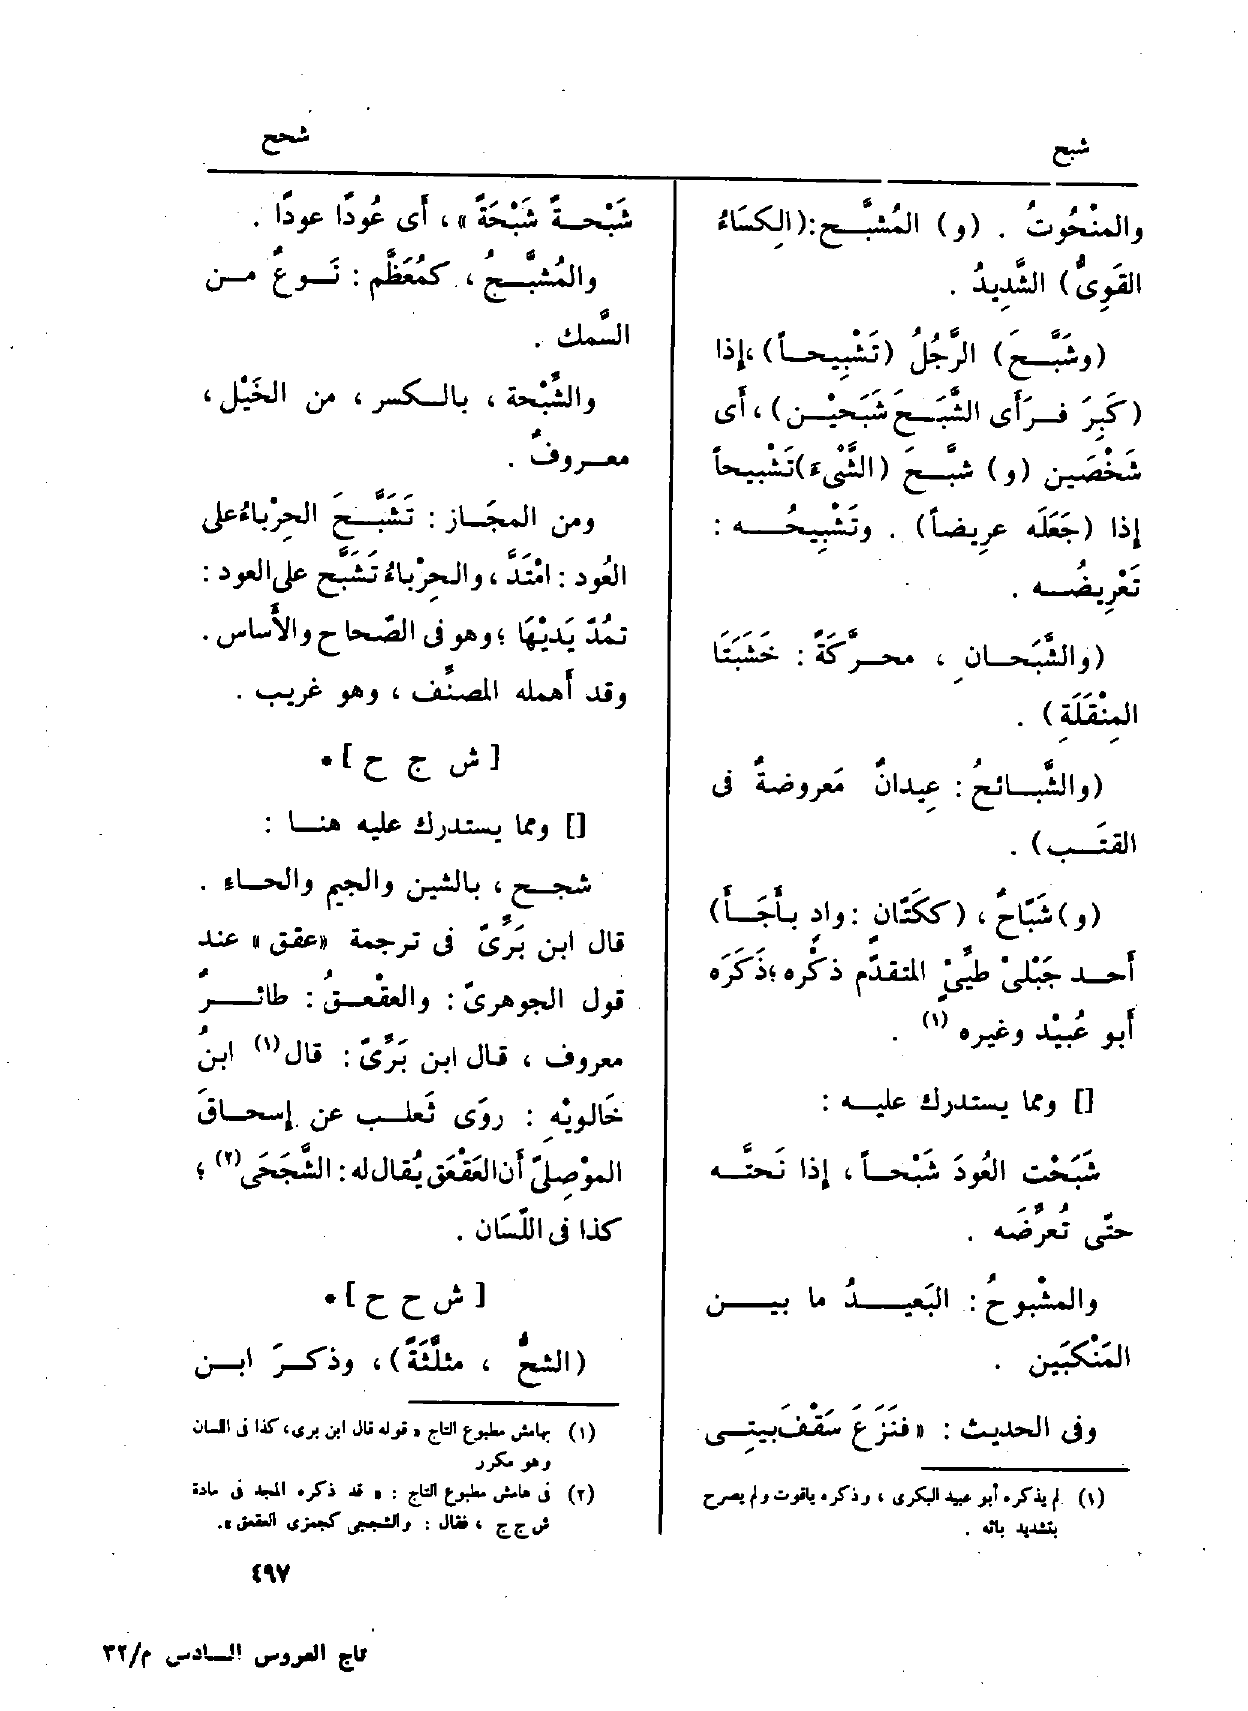 شبح
شحح
والمنْحُوتُ . (و) المُشبَّـح:(الكِسَاءُ
القَوِىُّ) الشَّدِيدُ .
(وشَبَّـحَ) الرَّجُلُ (تَشْبِيحـاً)،إذا
(كَبِرَ فـرَأى الشَّبَـحَ شَبَحيْـن)، أى
شَخْصَين (و) شبَّـحَ (الشَّىْءَ)تَشْبيحاً
إذا (جَعَلَه عريضاً) . وتَشْبِيحُــه :
تَعْرِيضُـه .
(والشَّبَحـانِ ، محـرَّكَةً : خَشَبَتَا
المِنْقَلَةِ) .
(والشَّبـائحُ : عِيدانٌ مَعروضةٌ فى
القتَـب) .
(و)شَبّاحٌ، (ككَتّان :وادٍ بـأَجَـأَ)
أَحـد جَبَلىْ طيِّئٍ المتقدّم ذكْره ؛ذَكَرَه
أبو عُبيْد وغيره (١) .
[] ومما يستدرك عليـه :
شَبَحْت العُودَ شَبْحـاً، إذا نَحتَّـه
حتّى تُعرِّضَه .
والمشْبوحُ : البَعيـدُ ما بيـن
المَنْكبَين .
وفى الحديث : «فنَزَعَ سَقْفَ بيتِـى
(١) لم يذكره أبو عبيد البكرى ، وذكره ياقوت ولم يصرح
بتشديد بائه .
شَبْحـةً شَبْحَةً»، أى عُودًا عودًا .
والمُشبَّـحُ، كمُعَظَّم : نَـوعٌ مـن
السَّمك .
والشِّبْحة ، بالـكسر ، من الخَيْل ،
معـروفٌ .
ومن المجَـاز : تَشَبَّـحَ الحِرْباءُ على
العُود : امْتَدَّ ، والحِرْباءُ تَشَبَّح على العود :
تمُدّ يَديْهَا ؛ وهو فى الصّحاح والأَساس .
وقد أهمله المصنِّف ، وهو غريب .
[ ش ج ح ] *
[] ومما يستدرك عليه هنـا :
شجـح ، بالشين والجيم والحاء .
قال ابن بَرِّىّ فى ترجمة «عقق» عند
قول الجوهرىّ : والعقْعـقُ : طائـرٌ
معروف ، قال ابن بَرِّىّ : قال(١) ابنُ
خَالويْهِ : روَى ثَعلـب عن إسحـاقَ
الموْصِلىّ أن العَقْعَق يُقال له : الشَّجَحَى (٢) ؛
كذا فى اللّسَان .
[ ش ح ح ] *
(الشحُّ ، مثلَّثَةً) ، وذكـرَ ابـن
(١) بهامش مطبوع التاج « قوله قال ابن برى، كذا فى اللسان
وهو مكرر
(٢) فى هامش مطبوع التاج : « قد ذكره المجد فى مادة
ش ج ج ، فقال : والشججى كجمزى العقعق ».
٤٩٧
تاج العروس السادس م/٣٢